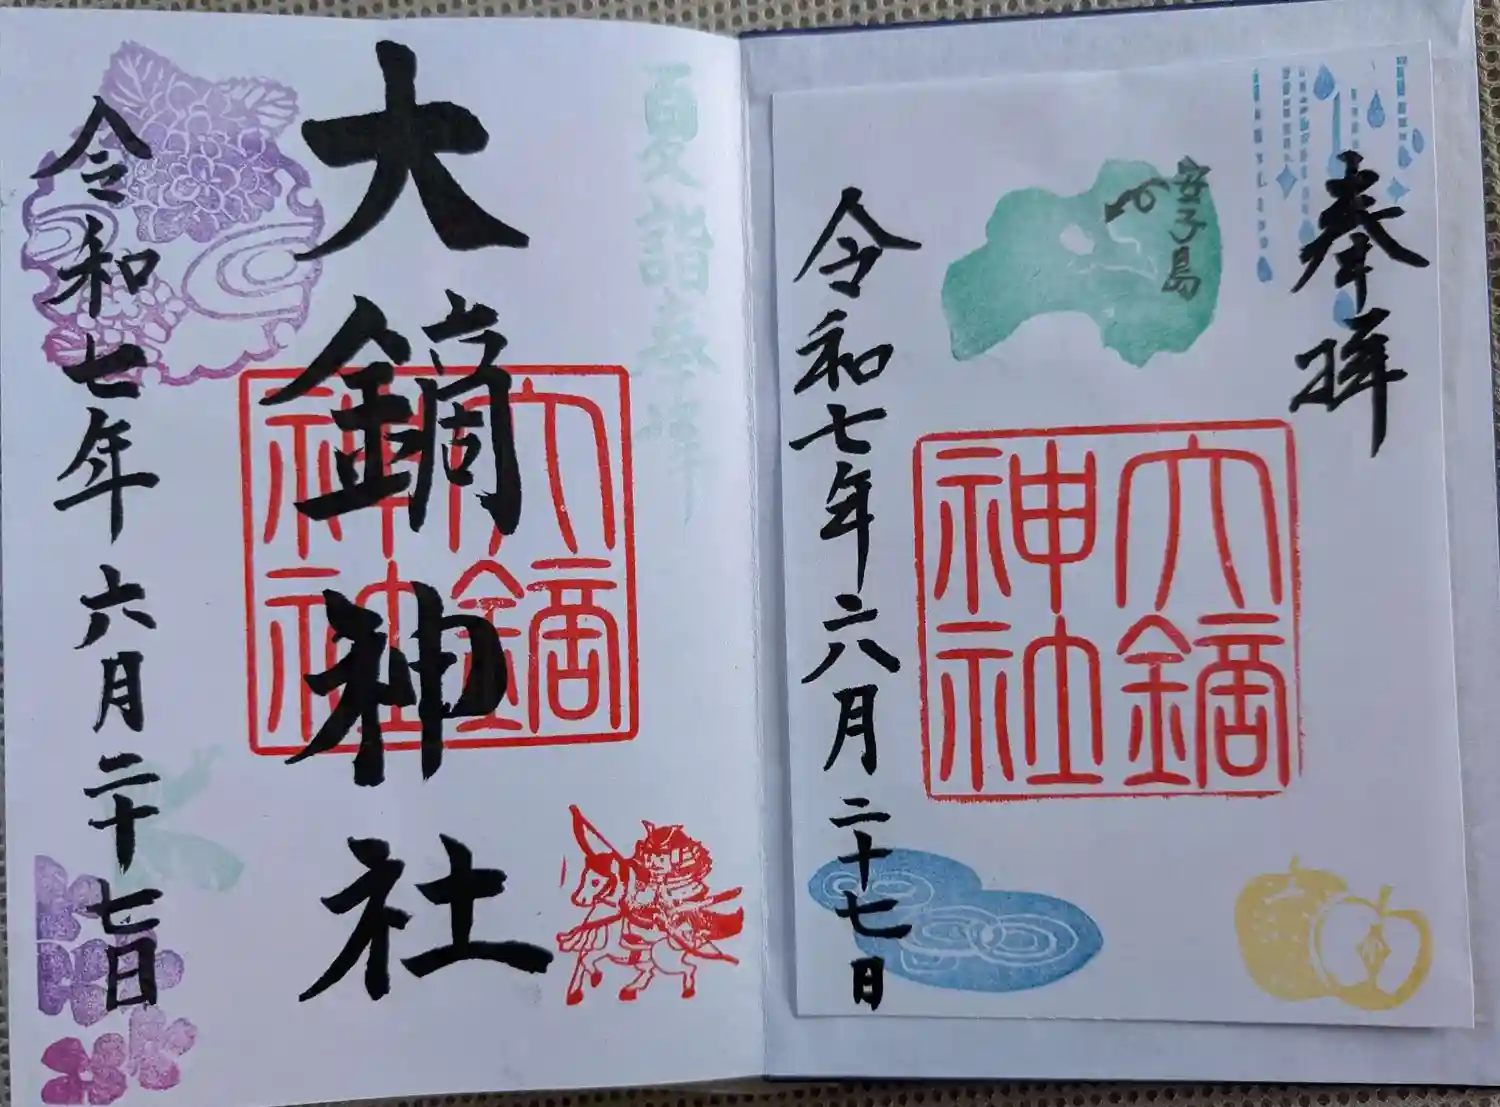 奉拝
安子島
大鏑
神社
令和七年六月二十七日
夏詣奉拝
大鏑神社
大鏑
神社
令和七年六月二十七日